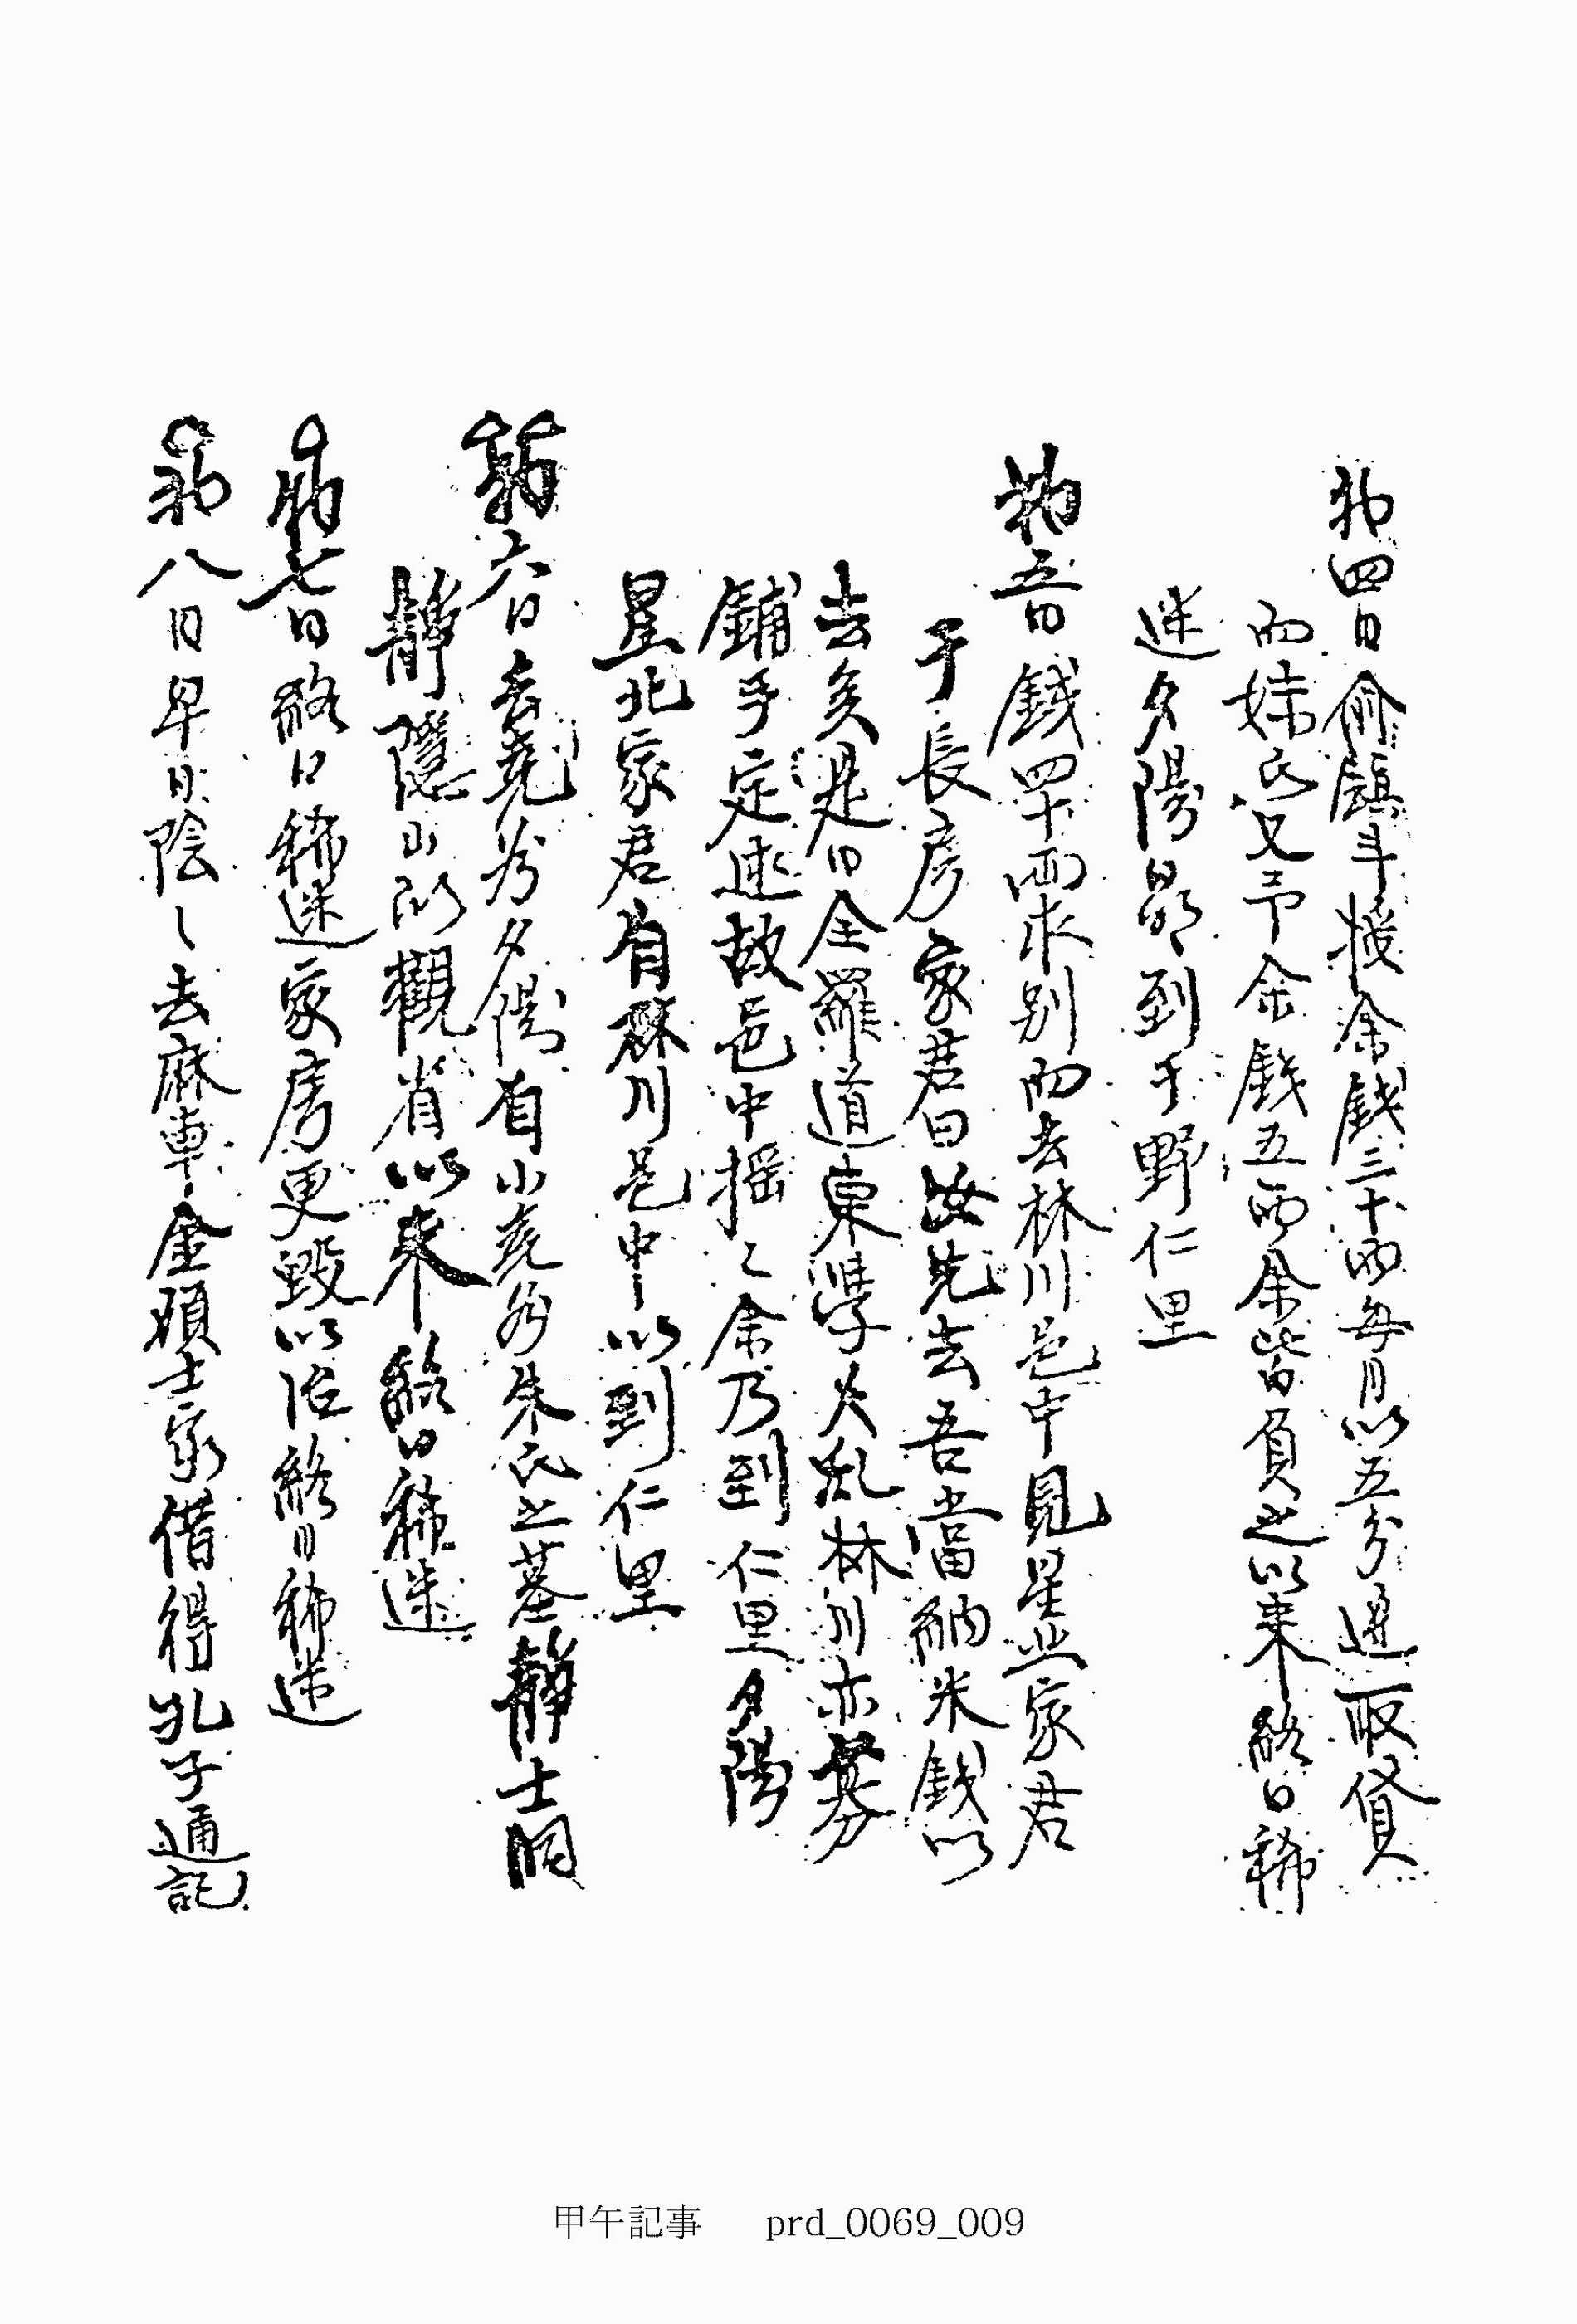 初四日俞鎭斗援余錢三十両每月以五分邊取貸
而妹氏又予余錢五両余皆負之以来終日稀
迷夕陽最到于野仁里
初五日錢四十両來別而去林川邑中見星北家君
于長房家君曰汝先去吾當納米錢以
去矣是日全羅道東學大乱林川亦募
鋪手定速故邑中搖〻余乃到仁里夕陽
星北家君自林川邑中以到仁里
初六日去堯谷夕陽自小堯谷朱氏之墓靜士洞
靜隱山所觀省以来終日稀迷
初七日終日稀迷家房更毀以治終日稀迷
初八日早日陰〻去麻車金碩士家借得孔子通記
甲午記事 prd_0069_009